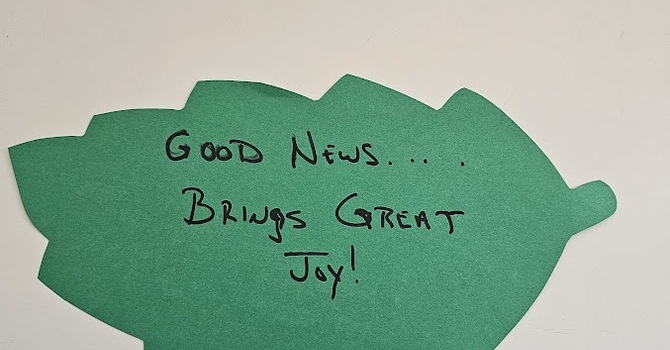 Good News.....
Brings Great
Joy!